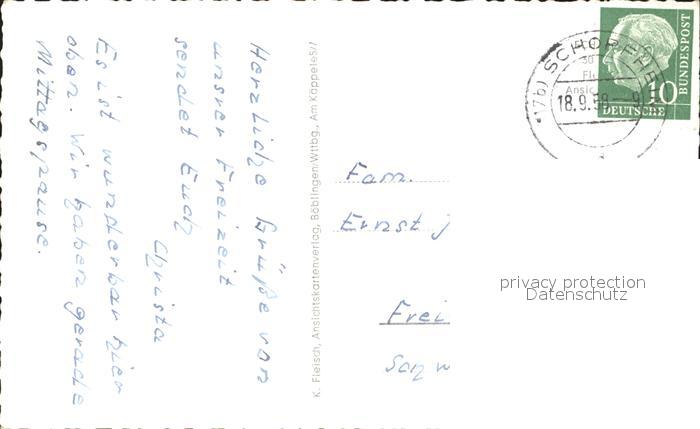 Herzliche Grüße von
unsrer Freizeit
sendet Euch
Christa
Es ist wunderbar hier
oben. Wir haben gerade
Mittagspause.
K. Fleisch, Ansichtskartenverlag, Böblingen/Wttbg., Am Käppele5//
Fam.
Ernst J
Frei
(17b) SCHOPFHE
18.9.58 — 9
10
DEUTSCHE
BUNDESPOST
privacy protection
Datenschutz